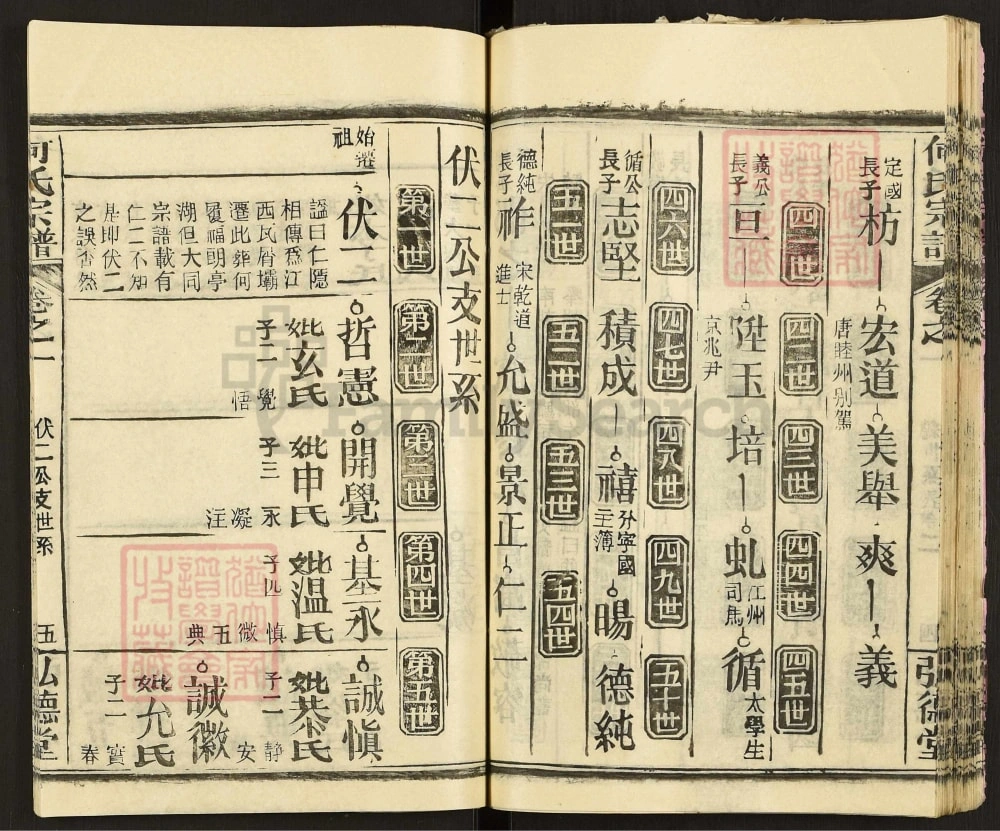 何氏宗譜
卷之一
弘德堂
定國長子
枋
宏道
唐睦州別駕
美舉
爽
義
四一世
四二世
四三世
四四世
四五世
義公長子
亘
陞玉
京兆尹
培
虬
江州司馬
循
太學生
四六世
四七世
四八世
四九世
五十世
循公長子
志堅
積成
禧
分寧國主簿
暘
德純
五一世
五二世
五三世
五四世
德純長子
祚
宋乾道進士
允盛
景正
仁二
伏二公支世系
第一世
第二世
第三世
第四世
第五世
始遷祖
伏二
諡曰仁隱
相傳爲江
西瓦屑壩
遷此葬何
覆福明亭
湖但大同
宗譜載有
仁二不知
是即伏二
之誤否然
哲憲
妣玄氏
子二
覺
悟
開覺
妣申氏
子三
永
凝
注
基永
妣溫氏
子四
慎
微
五
典
誠慎
妣恭氏
子二
靜
安
誠徽
妣允氏
子二
寳
春
何氏宗譜
卷之一
伏二公支世系
五
弘德堂
FamilySearch